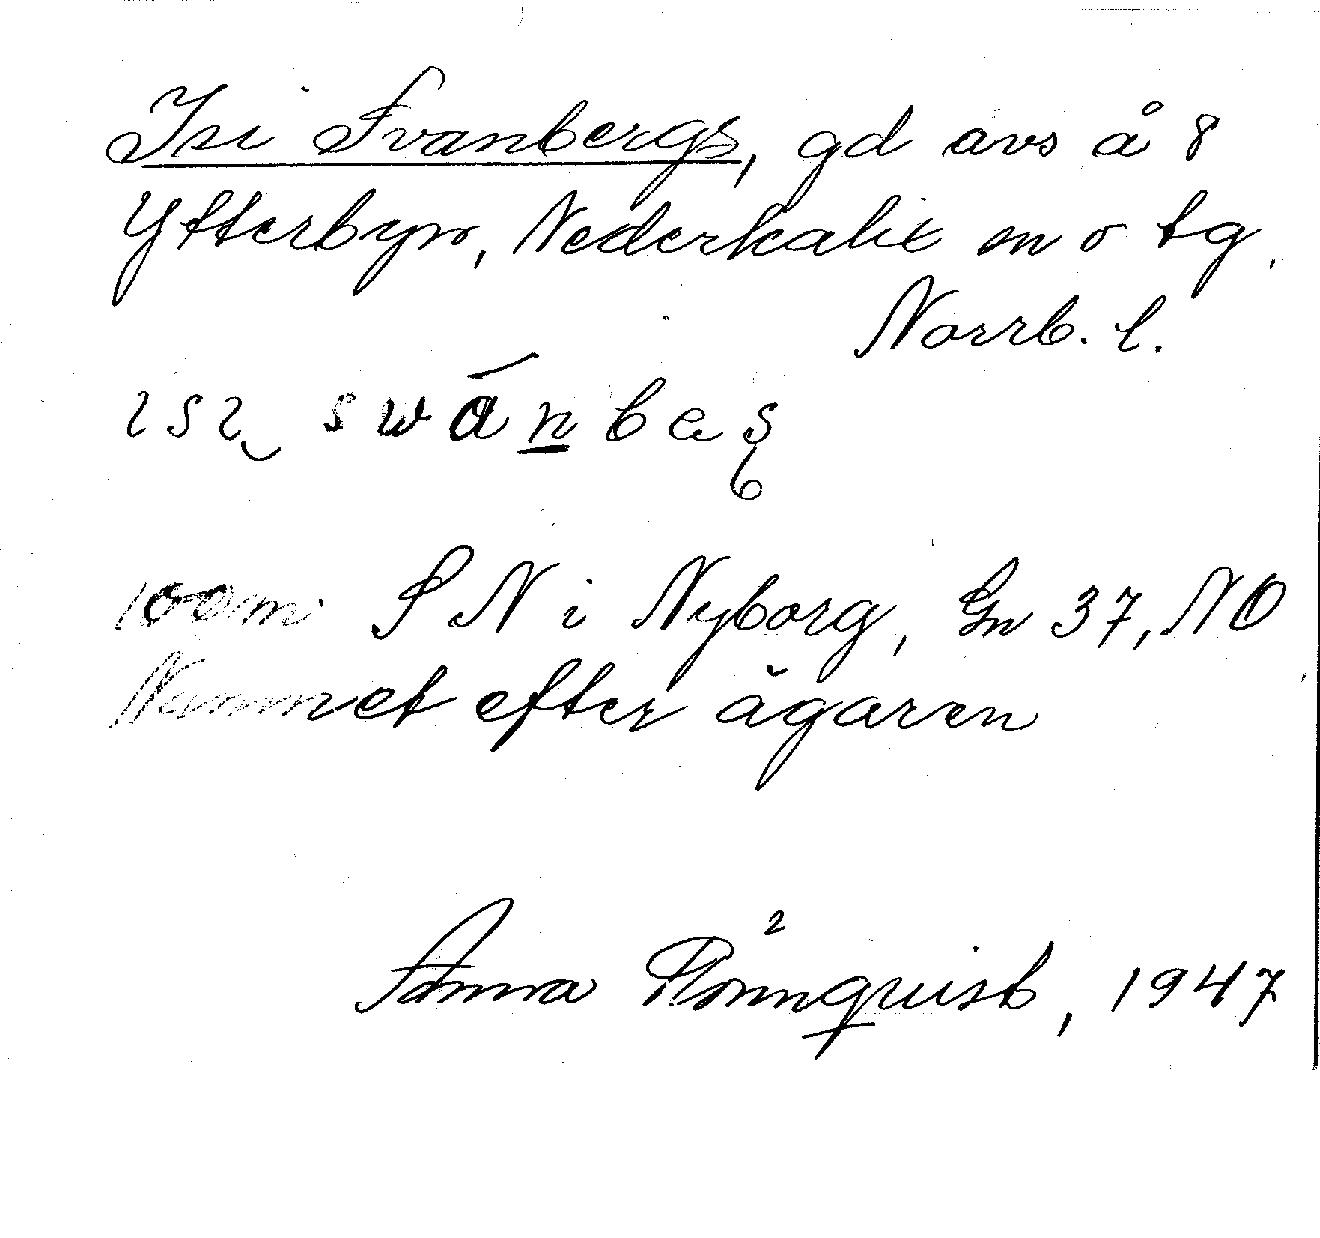 Isi Svanbergs, gd avs å 8
Ytterbyn, Nederkalix sn o tg.
Norrb. l.
ısı swánbeş
100m S N i Nyborg, Gn 37, NO
Namnet efter ägaren
Anna Rönnquist, 1947